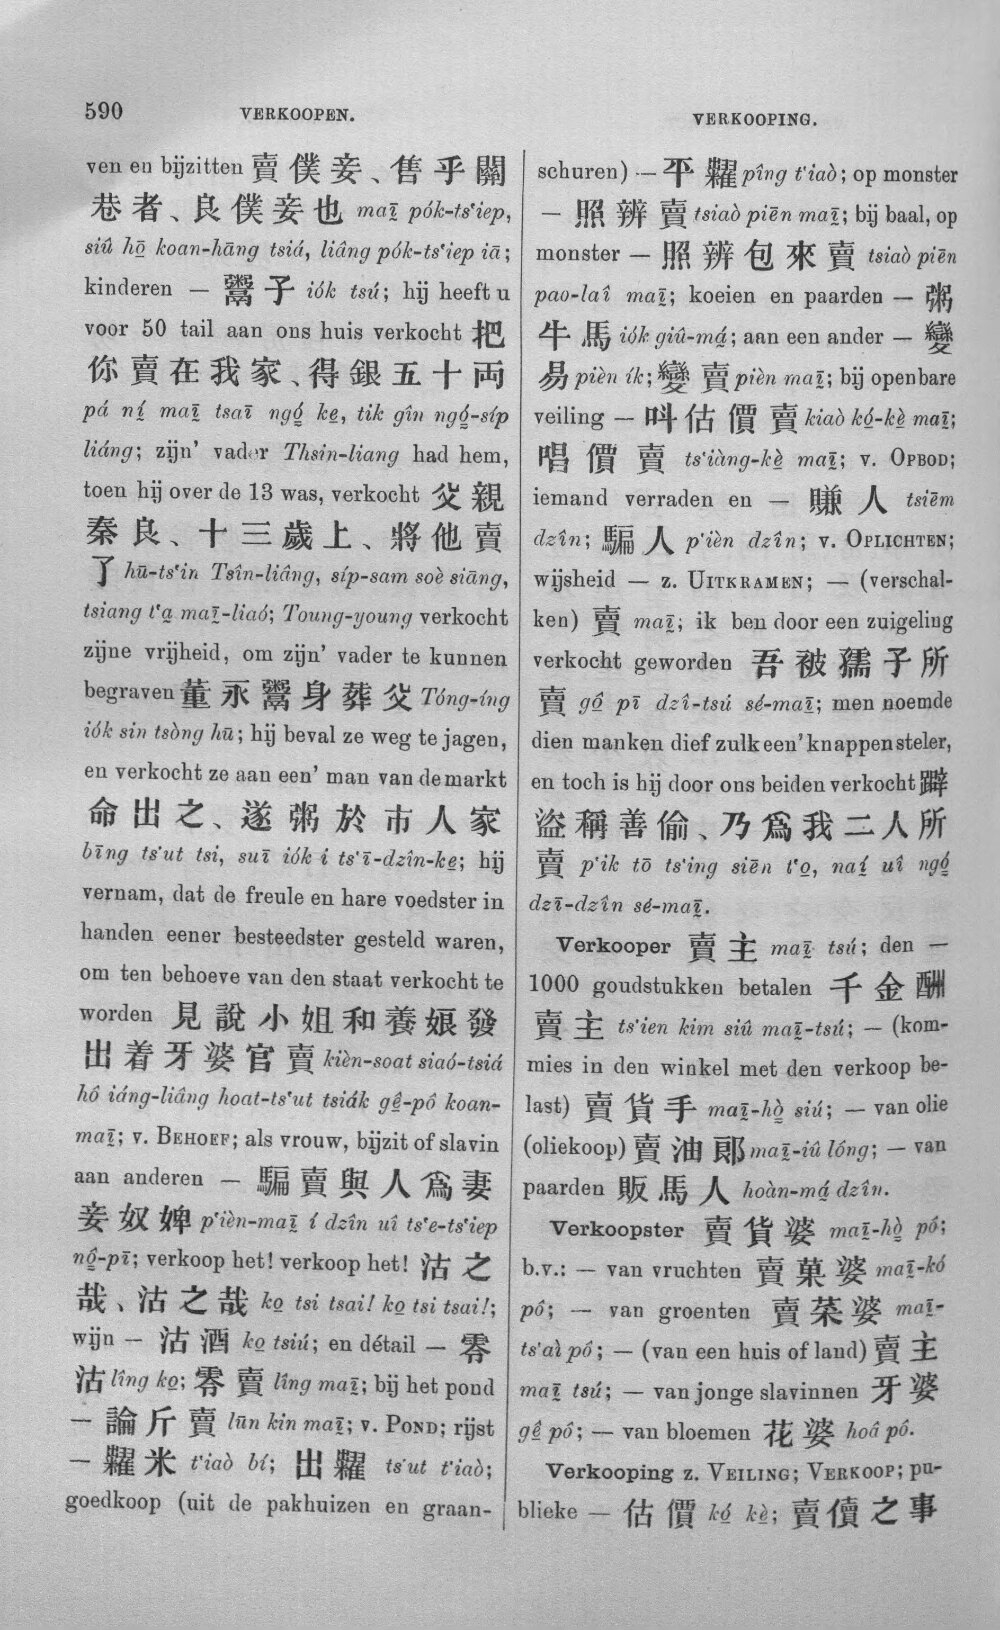 590 VERKOOPEN.
ven en bijzitten 賣僕妾、售乎關
巷者、良僕妾也 maī pók-ts‘iep,
siû hō koan-hāng tsiá, liâng pók-ts‘iep iā;
kinderen — 鬻子 iók tsú; hij heeft u
voor 50 tail aan ons huis verkocht 把
你賣在我家、得銀五十両
pá ní maī tsaī ngó ke, tik gîn ngó-síp
liáng; zijn' vader Thsin-liang had hem,
toen hij over de 13 was, verkocht 父親
秦良、十三歲上、將他賣
了 hū-ts‘in Tsîn-liâng, síp-sam soè siāng,
tsiang t‘a maī-liaó; Toung-young verkocht
zijne vrijheid, om zijn' vader te kunnen
begraven 董永鬻身葬父 Tóng-íng
iók sin tsòng hū; hij beval ze weg te jagen,
en verkocht ze aan een' man van de markt
命出之、遂粥於市人家
bīng ts‘ut tsi, suī iók i ts‘ī-dzîn-ke; hij
vernam, dat de freule en hare voedster in
handen eener besteedster gesteld waren,
om ten behoeve van den staat verkocht te
worden 見說小姐和養娘發
出着牙婆官賣 kièn-soat siaó-tsiá
hô iáng-liâng hoat-ts‘ut tsiák gê-pô koan-
maī; v. BEHOEF; als vrouw, bijzit of slavin
aan anderen — 騙賣與人爲妻
妾奴婢 p‘ièn-maī í dzîn uî ts‘e-ts‘iep
nô-pī; verkoop het! verkoop het! 沽之
哉、沽之哉 ko tsi tsai! ko tsi tsai!;
wijn — 沽酒 ko tsiú; en détail — 零
沽 lîng ko; 零賣 lîng maī; bij het pond
— 論斤賣 lūn kin maī; v. POND; rijst
— 糶米 t‘iaò bí; 出糶 ts‘ut t‘iaò;
goedkoop (uit de pakhuizen en graan-
VERKOOPING.
schuren) — 平糶 pîng t‘iaò; op monster
— 照辨賣 tsiaò piēn maī; bij baal, op
monster — 照辨包來賣 tsiaò piēn
pao-laî maī; koeien en paarden — 粥
牛馬 iók giû-má; aan een ander — 變
易 pièn ík; 變賣 pièn maī; bij openbare
veiling — 呌估價賣 kiaò kó-kè maī;
唱價賣 ts‘iàng-kè maī; v. OPBOD;
iemand verraden en — 賺人 tsiēm
dzîn; 騙人 p‘ièn dzîn; v. OPLICHTEN;
wijsheid — z. UITKRAMEN; — (verschal-
ken) 賣 maī; ik ben door een zuigeling
verkocht geworden 吾被孺子所
賣 gô pī dzî-tsú sé-maī; men noemde
dien manken dief zulk een' knappen steler,
en toch is hij door ons beiden verkocht 躃
盜稱善偷、乃爲我二人所
賣 p‘ik tō ts‘ing siēn t‘o, naí uî ngó
dzī-dzîn sé-maī.
Verkooper 賣主 maī tsú; den —
1000 goudstukken betalen 千金酬
賣主 ts‘ien kim siû maī-tsú; — (kom-
mies in den winkel met den verkoop be-
last) 賣貨手 maī-hò siú; — van olie
(oliekoop) 賣油郎 maī-iû lóng; — van
paarden 販馬人 hoàn-má dzîn.
Verkoopster 賣貨婆 maī-hò pô;
b.v.: — van vruchten 賣菓婆 maī-kó
pô; — van groenten 賣菜婆 maī-
ts‘aì pô; — (van een huis of land) 賣主
maī tsú; — van jonge slavinnen 牙婆
gê pô; — van bloemen 花婆 hoâ pô.
Verkooping z. VEILING; VERKOOP; pu-
blieke — 估價 kó kè; 賣儥之事